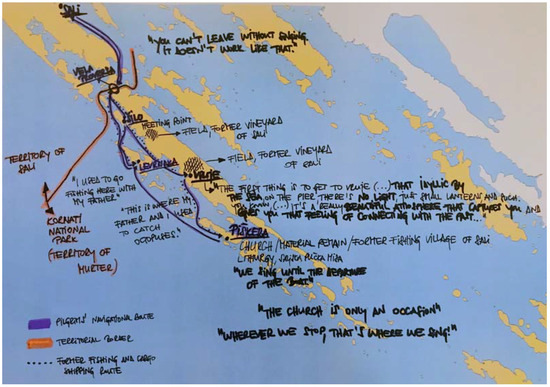 SALI
"YOU CAN'T LEAVE WITHOUT SINGING.
IT DOESN'T WORK LIKE THAT."
VELA
PROVERSA
ŠILO
MEETING POINT
FIELD, FORMER VINEYARD
OF SALI
LEVRNAKA
FIELD, FORMER VINEYARD
OF SALI
TERRITORY OF
SALI
VRUJE
"I USED TO GO
FISHING HERE WITH
MY FATHER."
"THE FIRST THING IS TO GET TO VRUJE (...) THAT IDYLLIC BY
THE SEA, ON THE PIER THERE IS NO LIGHT, JUST SMALL LANTERNS AND SUCH.
YOU KNOW (...) IT'S A REALLY BEAUTIFUL ATMOSPHERE THAT CAPTURES YOU AND
GIVES YOU THAT FEELING OF CONNECTING WITH THE PAST..."
"THIS IS WHERE MY
FATHER AND I USED
TO CATCH
OCTOPUSES."
KORNATI
NATIONAL
PARK
(TERRITORY OF
MURTER)
PIŠKERA
CHURCH / MATERIAL REMAIN / FORMER FISHING VILLAGE OF SALI
LITHURGY,
"WE SING UNTIL THE DEPARTURE
OF THE BOAT"
"THE CHURCH IS ONLY AN OCCASION"
"WHEREVER WE STOP, THAT'S WHERE WE SING!"
PILGRIMS' NAVIGATIONAL ROUTE
TERRITORIAL BORDER
FORMER FISHING AND CARGO
SHIPPING ROUTE